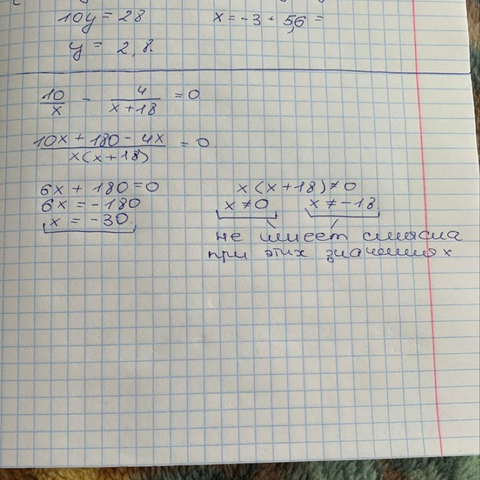 10y = 28
x = -3 + 5,6 =
y = 2,8.
10/x - 4/(x+18) = 0
(10x + 180 - 4x)/(x(x+18)) = 0
6x + 180 = 0
x(x+18) ≠ 0
6x = -180
x ≠ 0 x ≠ -18
x = -30
не имеет смысла
при этих значениях